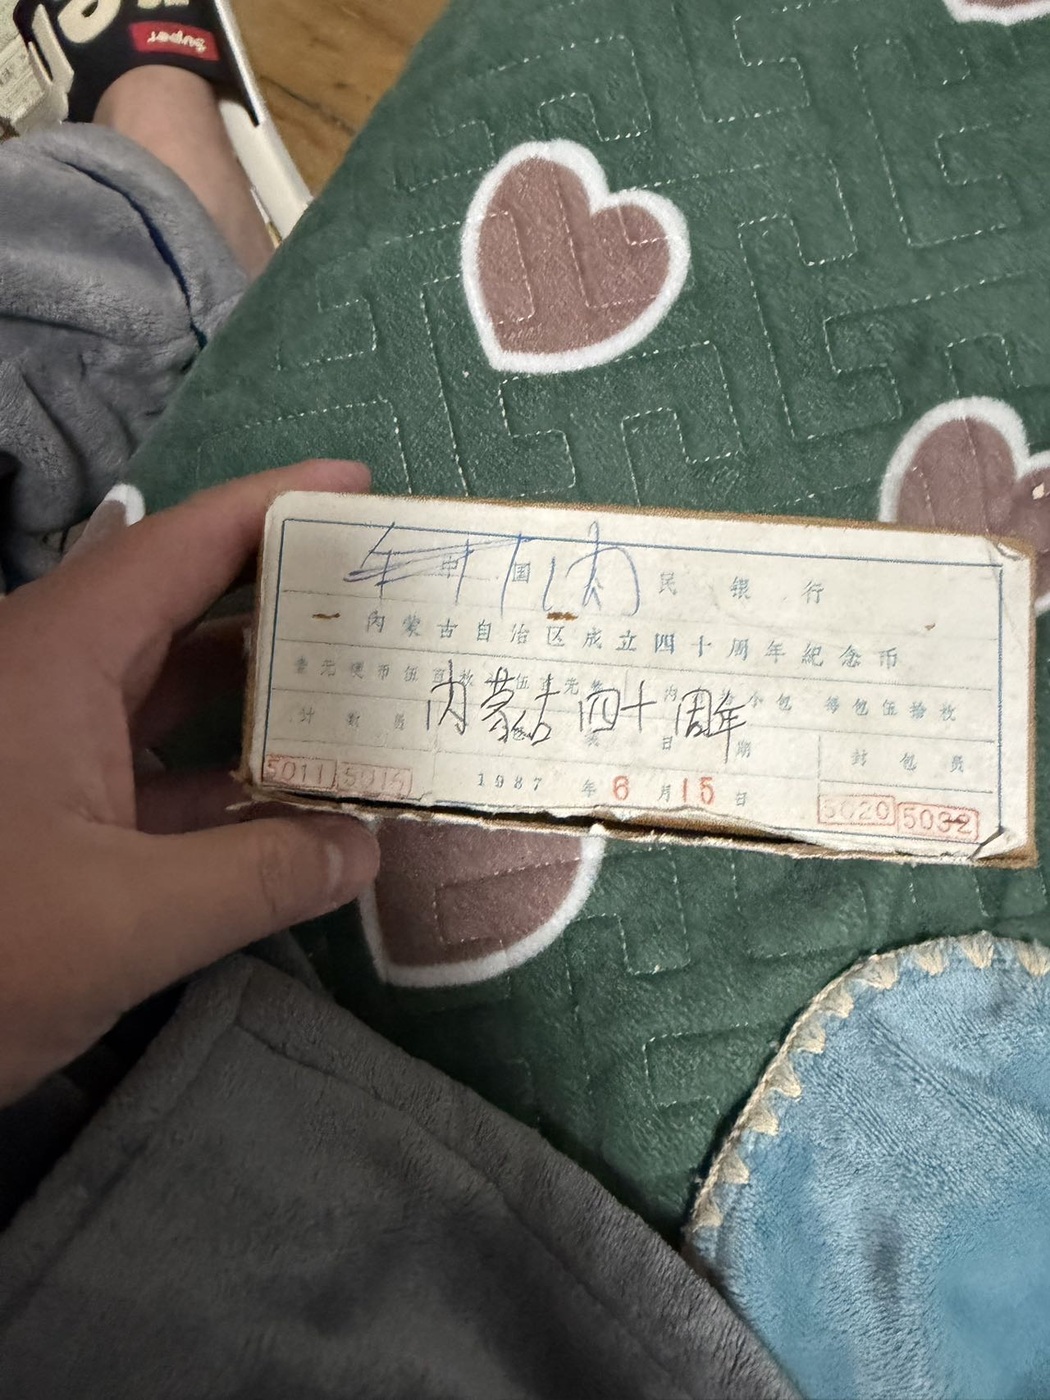 Super
中国人民银行
内蒙古自治区成立四十周年紀念币
壹元硬币伍百枚 伍百元整 内 小包 每包伍拾枚
内蒙古四十周年
计数员 日期 封包员
5011 5015 1987年6月15日 5020 5032